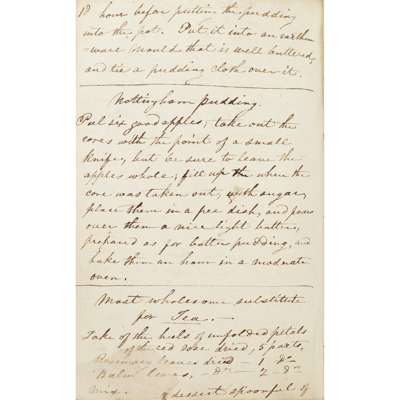 hour before putting the pudding
into the pot. Put it into an earthen
-ware mould that is well buttered,
and tie a pudding cloth over it.
Nottingham pudding.
Peel six good apples; take out the
cores with the point of a small
knife, but be sure to leave the
apples whole; fill up the where the
core was taken out, with sugar,
place them in a pie dish, and pour
over them a nice light batter,
prepared as for batter pudding, and
bake them an hour in a moderate
oven.
Most wholesome substitute
for Tea.—
Take of the heels of unfolded petals
of the red rose dried, 5 parts,
Rosemary leaves dried 1 Do
Balm leaves, — Do — 2 Do
Mix. a dessert spoonful of